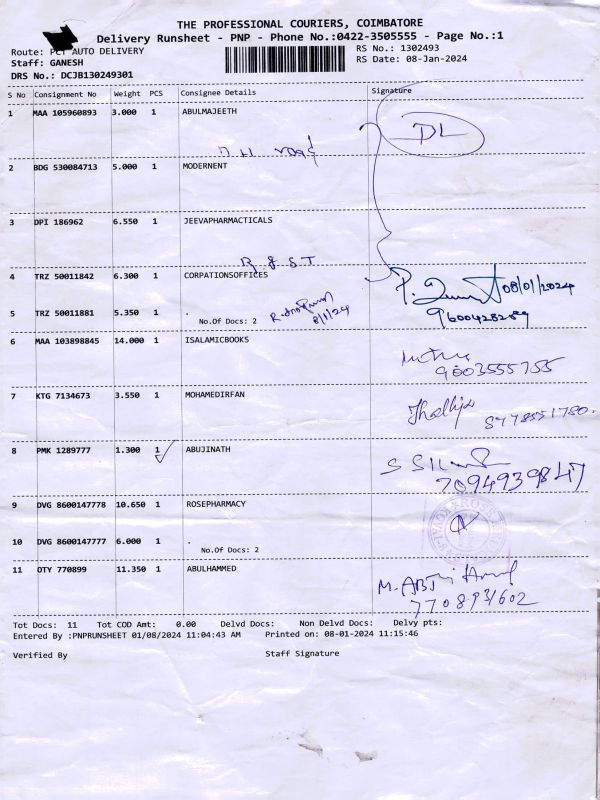 THE PROFESSIONAL COURIERS, COIMBATORE
Delivery Runsheet - PNP - Phone No.:0422-3505555 - Page No.:1
Route: PCT AUTO DELIVERY
RS No.: 1302493
Staff: GANESH
RS Date: 08-Jan-2024
DRS No.: DCJB130249301
S No Consignment No Weight PCS Consignee Details Signature
1 MAA 105960893 3.000 1 ABULMAJEETH
DL
2 BDG 530084713 5.000 1 MODERNENT
3 DPI 186962 6.550 1 JEEVAPHARMACTICALS
4 TRZ 50011842 6.300 1 CORPATIONSOFFICES
08/01/2024
5 TRZ 50011881 5.350 1 .
No.Of Docs: 2
8/1/24
9600428289
6 MAA 103898845 14.000 1 ISALAMICBOOKS
9003555755
7 KTG 7134673 3.550 1 MOHAMEDIRFAN
8778551780.
8 PMK 1289777 1.300 1 ABUJINATH
7094939847
9 DVG 8600147778 10.650 1 ROSEPHARMACY
10 DVG 8600147777 6.000 1 .
No.Of Docs: 2
11 OTY 770899 11.350 1 ABULHAMMED
7708931602
Tot Docs: 11 Tot COD Amt: 0.00 Delvd Docs: Non Delvd Docs: Delvy pts:
Entered By :PNPRUNSHEET 01/08/2024 11:04:43 AM Printed on: 08-01-2024 11:15:46
Verified By Staff Signature